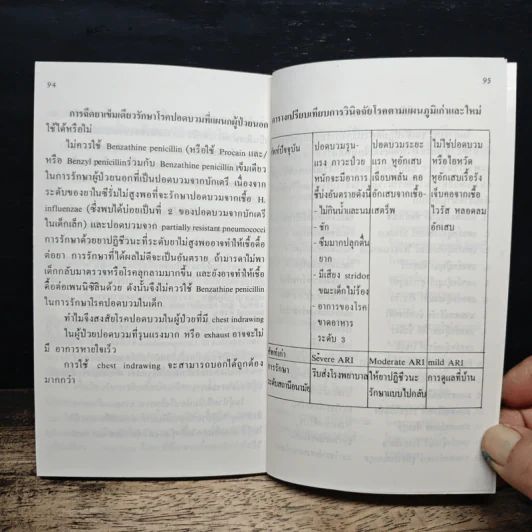 94
การฉีดยาเข็มเดียวรักษาโรคปอดบวมที่แผนกผู้ป่วยนอก
ใช้ได้หรือไม่
ไม่ควรใช้ Benzathine penicillin (หรือใช้ Procain และ/
หรือ Benzyl penicillinร่วมกับ Benzathine penicillin เข็มเดียว
ในการรักษาผู้ป่วยนอกที่เป็นปอดบวมจากบักเตรี เนื่องจาก
ระดับของยาในซีรั่มไม่สูงพอที่จะรักษาปอดบวมจากเชื้อ H.
influenzae (ซึ่งพบได้บ่อยเป็นที่ 2 ของปอดบวมจากบักเตรี
ในเด็กเล็ก) และปอดบวมจาก partially resistant pneumococci
การรักษาด้วยยาปฏิชีวนะที่ระดับยาไม่สูงพออาจทำให้เชื้อดื้อ
ต่อยา การรักษาที่ได้ผลไม่ดีจะเป็นอันตราย ถ้ามารดาไม่พา
เด็กกลับมาตรวจหรือโรคลุกลามมากขึ้น และยังอาจทำให้เชื้อ
ดื้อต่อเพนนิซิลินด้วย ดังนั้นจึงไม่ควรใช้ Benzathine penicillin
ในการรักษาโรคปอดบวมในเด็ก
ทำไมจึงสงสัยโรคปอดบวมในผู้ป่วยที่มี chest indrawing
ในผู้ป่วยปอดบวมที่รุนแรงมาก หรือ exhaust อาจจะไม่
มี อาการหายใจเร็ว
การใช้ chest indrawing จะสามารถบอกได้ถูกต้อง
มากกว่า
95
ตารางเปรียบเทียบการวินิจฉัยโรคตามแผนภูมิเก่าและใหม่
ปอดบวมรุน- ปอดบวมระยะ ไม่ใช่ปอดบวม
แรง ภาวะป่วย แรก หูอักเสบ หรือไอหวัด
หนักจะมีอาการ เฉียบพลัน คอ หูอักเสบเรื้อรัง
ชี้บ่งอันตรายดังนี้ อักเสบจากเชื้อ เจ็บคอจากเชื้อ
- ไม่กินน้ำและนม สเตร็พ ไวรัส หลอดลม
- ชัก อักเสบ
- ซึมมากปลุกตื่น
ยาก
- มีเสียง stridor
ขณะเด็กไม่ร้อง
- อาการของโรค
ขาดอาหาร
ระดับ 3
ศัพท์เก่า Severe ARI Moderate ARI mild ARI
การรักษา รับส่งโรงพยาบาล ให้ยาปฏิชีวนะ การดูแลที่บ้าน
ระดับสถานีอนามัย รักษาแบบไปกลับ